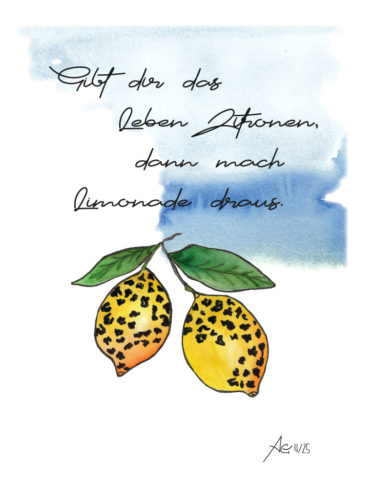 Gibt dir das
Leben Zitronen,
dann mach
Limonade draus.
11/25